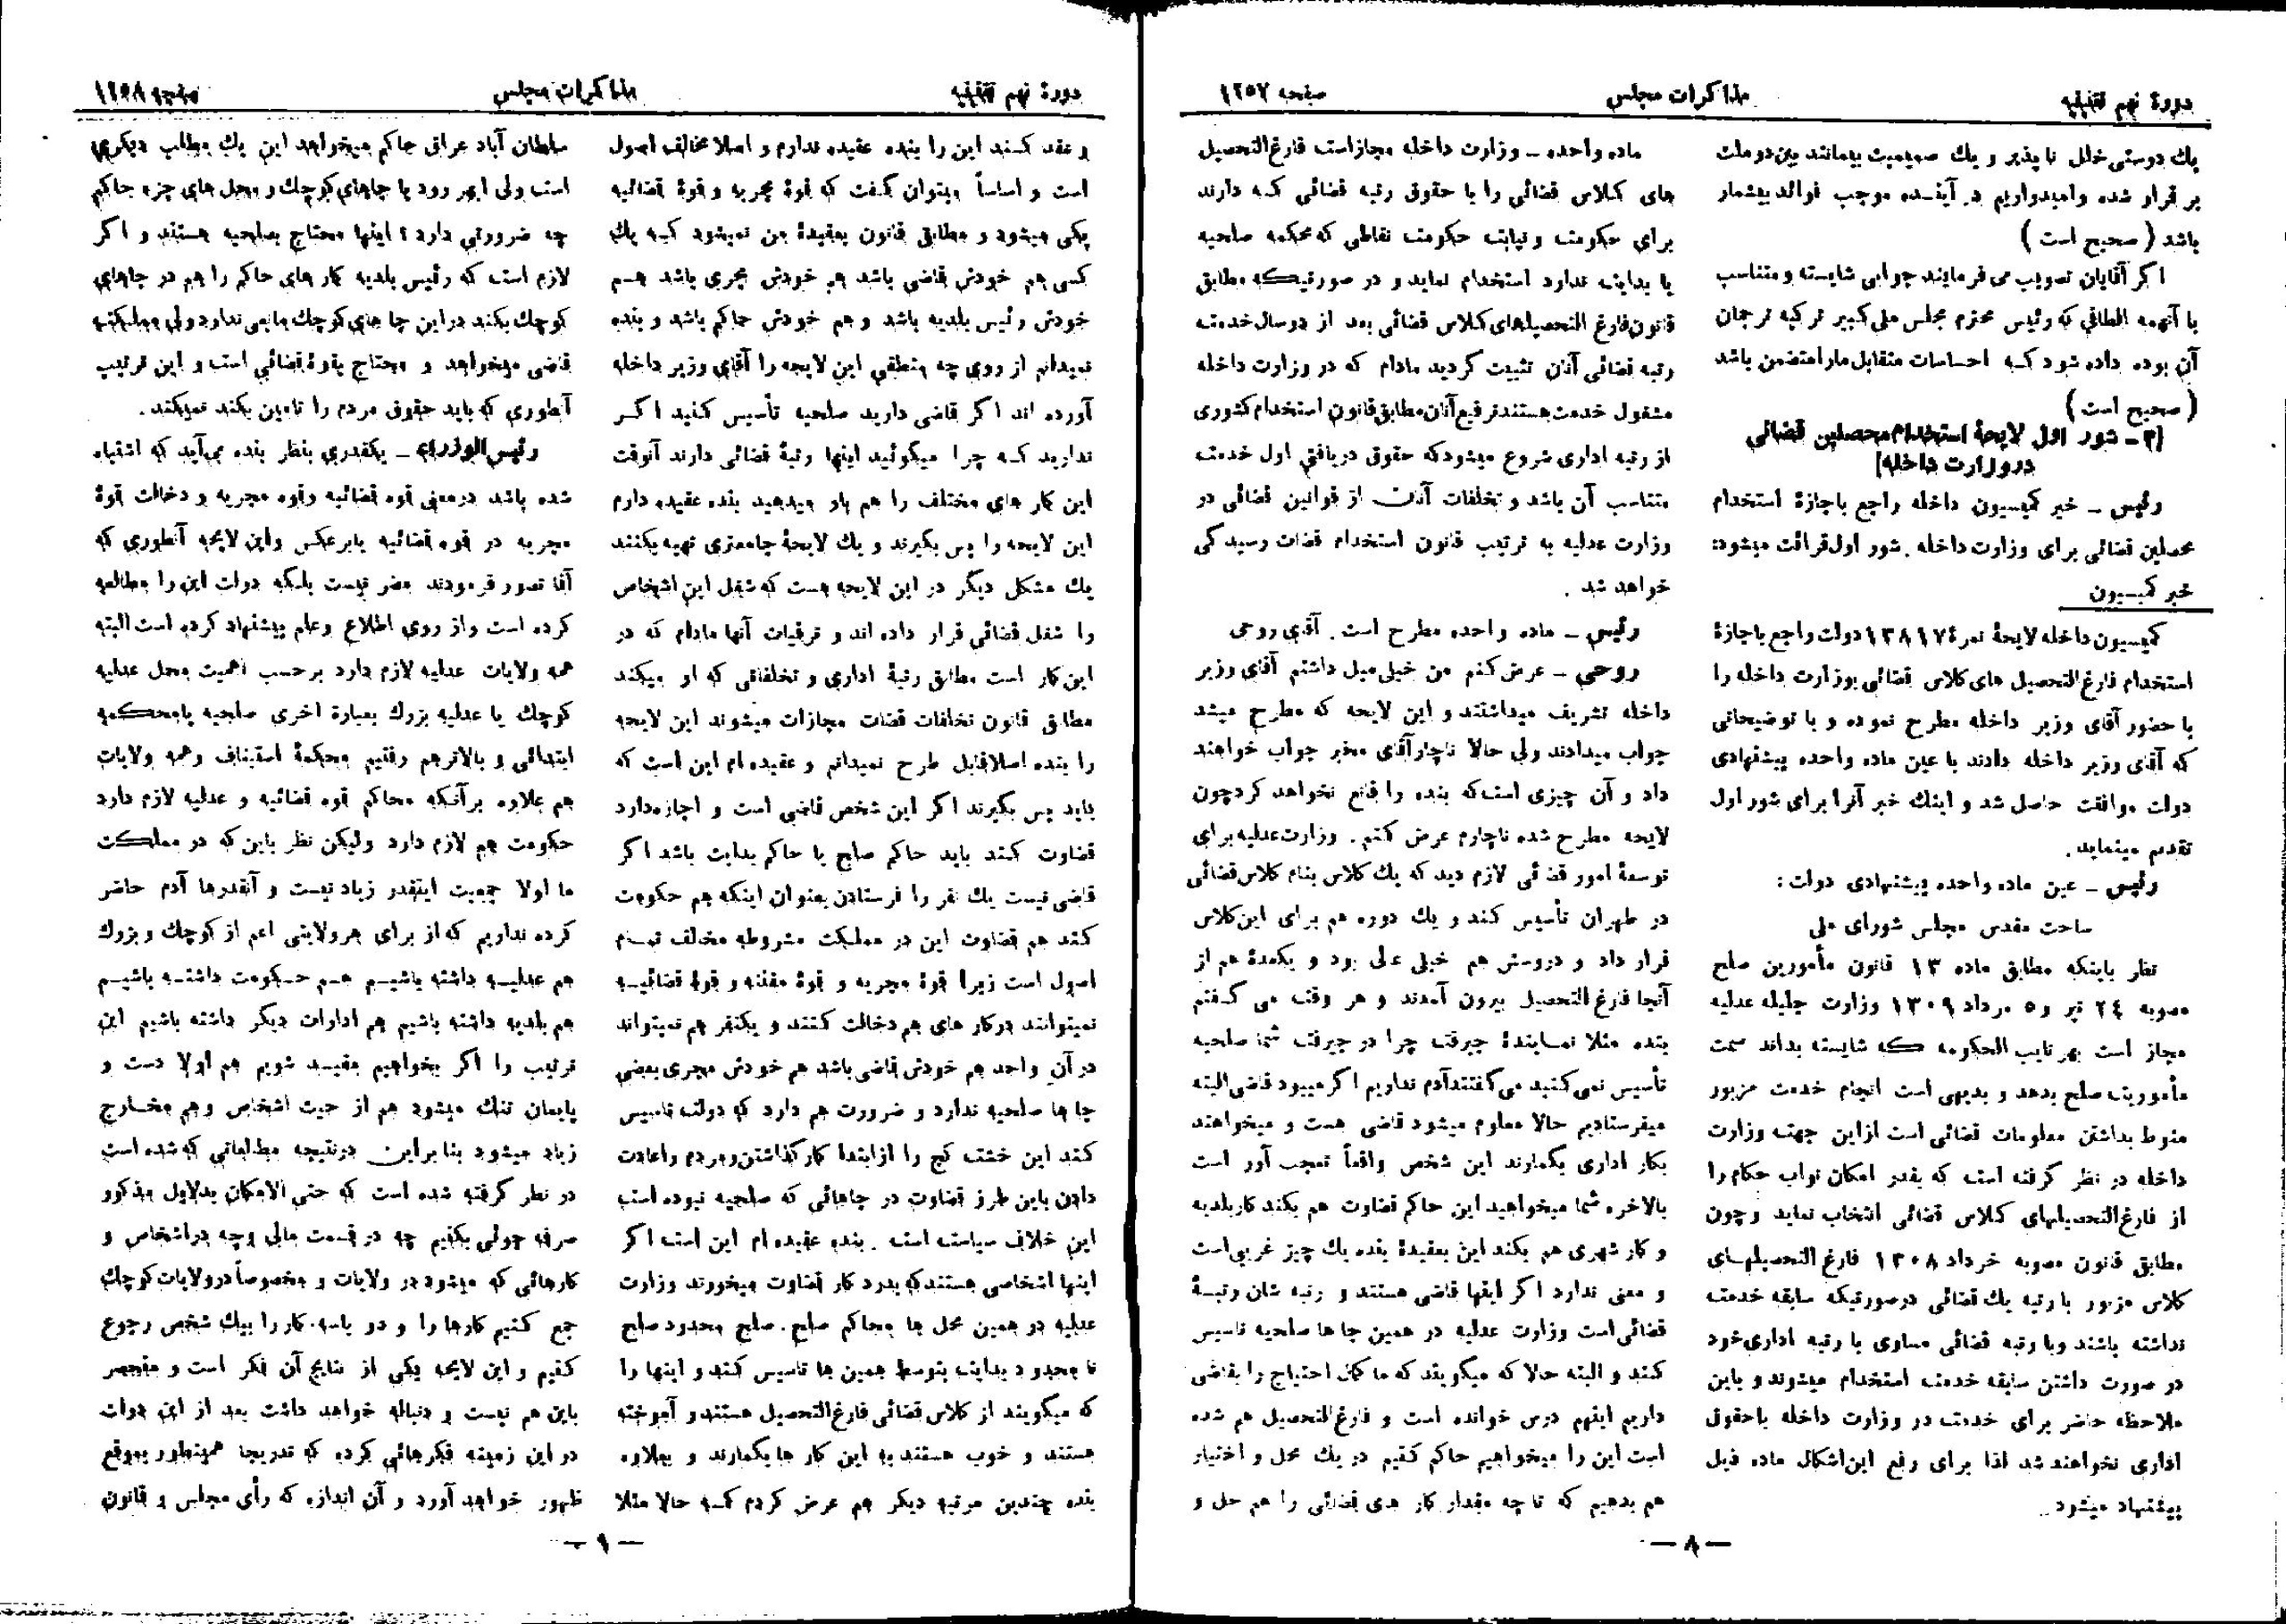 دورهٔ نهم تقنینیه
مذاکرات مجلس
صفحه ۱۲۵۷
یك دوستی خلل ناپذیر و یك صمیمیت بیمانند بین دو ملت
بر قرار شده وامیدواریم در آینده موجب فوائد بیشمار
باشد ( صحیح است )
اگر آقایان تصویب می فرمایند جوابی شایسته و متناسب
با آنهمه الطافی که رئیس محترم مجلس ملی کبیر ترکیه ترجمان
آن بوده داده شود که احساسات متقابل مارا متضمن باشد
( صحیح است )
[۳ ـ شور اول لایحهٔ استخدام محصلین قضائی
در وزارت داخله]
رئیس ـ خبر کمیسیون داخله راجع باجازهٔ استخدام
محصلین قضائی برای وزارت داخله . شور اول قرائت میشود:
خبر کمیسیون
کمیسیون داخله لایحهٔ نمرهٔ ۱۳۸۱۷۴ دولت راجع باجازهٔ
استخدام فارغ التحصیل های کلاس قضائی بوزارت داخله را
با حضور آقای وزیر داخله مطرح نموده و با توضیحاتی
که آقای وزیر داخله دادند با عین ماده واحده پیشنهادی
دولت موافقت حاصل شد و اینك خبر آنرا برای شور اول
تقدیم مینماید.
رئیس ـ عین ماده واحده پیشنهادی دولت :
ساحت مقدس مجلس شورای ملی
نظر باینکه مطابق ماده ۱۳ قانون مأمورین صلح
مصوبه ۲۴ تیر و۵ مرداد ۱۳۰۹ وزارت جلیله عدلیه
مجاز است بهر نایب الحکومه که شایسته بداند سمت
مأموریت صلح بدهد و بدیهی است انجام خدمت مزبور
منوط بداشتن معلومات قضائی است از این جهت وزارت
داخله در نظر گرفته است که بقدر امکان نواب حکام را
از فارغ التحصیلهای کلاس قضائی انتخاب نماید و چون
مطابق قانون مصوبه خرداد ۱۳۰۸ فارغ التحصیلهای
کلاس مزبور با رتبه یك قضائی درصورتیکه سابقه خدمت
نداشته باشند وبا رتبه قضائی مساوی با رتبه اداری خود
در صورت داشتن سابقه خدمت استخدام میشوند و باین
ملاحظه حاضر برای خدمت در وزارت داخله باحقوق
اداری نخواهند شد لذا برای رفع این اشکال ماده ذیل
پیشنهاد میشود
ماده واحده ـ وزارت داخله مجازاست فارغ التحصیل
های کلاس قضائی را با حقوق رتبه قضائی که دارند
برای حکومت و نیابت حکومت نقاطی که محکمه صلحیه
یا بدایت ندارد استخدام نماید و در صورتیکه مطابق
قانون فارغ التحصیلهای کلاس قضائی بعد از دو سال خدمت
رتبه قضائی آنان تثبیت گردید مادام که در وزارت داخله
مشغول خدمت هستند ترفیع آنان مطابق قانون استخدام کشوری
از رتبه اداری شروع میشود که حقوق دریافتی اول خدمت
متناسب آن باشد و تخلفات آنان از قوانین قضائی در
وزارت عدلیه به ترتیب قانون استخدام قضات رسیدگی
خواهد شد .
رئیس ـ ماده واحده مطرح است . آقای روحی
روحی ـ عرض کنم من خیلی میل داشتم آقای وزیر
داخله تشریف میداشتند و این لایحه که مطرح میشد
جواب میدادند ولی حالا ناچار آقای مخبر جواب خواهند
داد و آن چیزی است که بنده را قانع نخواهد کرد چون
لایحه مطرح شده ناچارم عرض کنم . وزارت عدلیه برای
توسعهٔ امور قضائی لازم دید که یك کلاس بنام کلاس قضائی
در طهران تأسیس کند و یك دوره هم برای این کلاس
قرار داد و دروسش هم خیلی عالی بود و یکعدهٔ هم از
آنجا فارغ التحصیل بیرون آمدند و هر وقت می گفتم
بنده مثلا نمایندهٔ جیرفت چرا در جیرفت شما صلحیه
تأسیس نمی کنید می گفتند آدم نداریم اگر میبود قاضی البته
میفرستادیم حالا معلوم میشود قاضی هست و میخواهند
بکار اداری بگمارند این شخص واقعاً تعجب آور است
بالاخره شما میخواهید این حاکم قضاوت هم بکند کار بلدیه
و کار شهری هم بکند این بعقیدهٔ بنده یك چیز غریبی است
و معنی ندارد اگر اینها قاضی هستند و رتبه شان رتبهٔ
قضائی است وزارت عدلیه در همین جا ها صلحیه تاسیس
کند و البته حالا که میگویند که ما کمال احتیاج را بقاضی
داریم اینهم درس خوانده است و فارغ التحصیل هم شده
است این را میخواهیم حاکم کنیم در یك محل و اختیار
هم بدهیم که تا چه مقدار کار های قضائی را هم حل و
— ۸ —
دورهٔ نهم تقنینیه
مذاکرات مجلس
صفحه ۱۲۵۸
و عقد کند این را بنده عقیده ندارم و اصلا مخالف اصول
است و اساساً میتوان گفت که قوهٔ مجریه و قوهٔ قضائیه
یکی میشود و مطابق قانون بعقیدهٔ من نمیشود که یك
کسی هم خودش قاضی باشد هم خودش مجری باشد هم
خودش رئیس بلدیه باشد و هم خودش حاکم باشد و بنده
نمیدانم از روی چه منطقی این لایحه را آقای وزیر داخله
آورده اند اگر قاضی دارید صلحیه تأسیس کنید اگر
ندارید که چرا میگوئید اینها رتبهٔ قضائی دارند آنوقت
این کار های مختلف را هم باو میدهید بنده عقیده دارم
این لایحه را پس بگیرند و یك لایحهٔ جامعتری تهیه بکنند
یك مشکل دیگر در این لایحه هست که شغل این اشخاص
را شغل قضائی قرار داده اند و ترقیات آنها مادام که در
این کار است مطابق رتبهٔ اداری و تخلفاتی که او میکند
مطابق قانون تخلفات قضات مجازات میشوند این لایحه
را بنده اصلا قابل طرح نمیدانم و عقیده ام این است که
باید پس بگیرند اگر این شخص قاضی است و اجازه دارد
قضاوت کند باید حاکم صلح یا حاکم بدایت باشد اگر
قاضی نیست یك نفر را فرستادن بعنوان اینکه هم حکومت
کند هم قضاوت این در مملکت مشروطه مخالف تمام
اصول است زیرا قوهٔ مجریه و قوهٔ مقننه و قوهٔ قضائیه
نمیتوانند درکار های هم دخالت کنند و یکنفر هم نمیتواند
در آن واحد هم خودش قاضی باشد هم خودش مجری بعضی
جا ها صلحیه ندارد و ضرورت هم دارد که دولت تاسیس
کند این خشت کج را از ابتدا کار گذاشتن و مردم را عادت
دادن باین طرز قضاوت در جاهائی که صلحیه نبوده است
این خلاف سیاست است . بنده عقیده ام این است اگر
اینها اشخاصی هستند که بدرد کار قضاوت میخورند وزارت
عدلیه در همین محل ها محاکم صلح . صلح محدود صلح
نا محدود بدایت بتوسط همین ها تاسیس کند و اینها را
که میگویند از کلاس قضائی فارغ التحصیل هستند و آموخته
هستند و خوب هستند با این کار ها بگمارند و بعلاوه
بنده چندین مرتبه دیگر هم عرض کردم که حالا مثلا
سلطان آباد عراق حاکم میخواهد این یك مطلب دیگری
است ولی ابهر رود یا جاهای کوچك و محل های جزء حاکم
چه ضرورتی دارد ؟ اینها محتاج بصلحیه هستند و اگر
لازم است که رئیس بلدیه کار های حاکم را هم در جاهای
کوچك بکند در این جا های کوچك مانعی ندارد ولی مملکت
قاضی میخواهد و محتاج بقوهٔ قضائی است و این ترتیب
آنطوری که باید حقوق مردم را تامین بکند نمیکند .
رئیس الوزراء ـ یکقدری بنظر بنده می آید که اشتباه
شده باشد درمعنی قوه قضائیه وقوه مجریه و دخالت قوهٔ
مجریه در قوه قضائیه یا برعکس واین لایحه آنطوری که
آقا تصور فرمودند مضر نیست بلکه دولت این را مطالعه
کرده است واز روی اطلاع وعلم پیشنهاد کرده است البته
همه ولایات عدلیه لازم دارد بر حسب اهمیت محل عدلیه
کوچك یا عدلیه بزرك بعبارة اخری صلحیه یا محکمه
ابتدائی و بالاتر هم رفتیم محکمهٔ استیناف وهمه ولایات
هم علاوه برآنکه محاکم قوه قضائیه و عدلیه لازم دارد
حکومت هم لازم دارد ولیکن نظر باین که در مملکت
ما اولا جمعیت اینقدر زیاد نیست و آنقدرها آدم حاضر
کرده نداریم که از برای هرولایتی اعم از کوچك و بزرك
هم عدلیه داشته باشیم هم حکومت داشته باشیم
هم بلدیه داشته باشیم هم ادارات دیگر داشته باشیم این
ترتیب را اگر بخواهیم مقید شویم هم اولا دست و
پایمان تنك میشود هم از حیث اشخاص وهم مخارج
زیاد میشود بنا براین درنتیجه مطالعاتی که شده است
در نظر گرفته شده است که حتی الامکان بدلایل مذکور
صرفه جوئی بکنیم چه در قسمت مالی وچه دراشخاص و
کارهائی که میشود در ولایات و مخصوصاً درولایات کوچك
جمع کنیم کارها را و دو یا سه کار را بیك شخص رجوع
کنیم و این لایحه یکی از نتایج آن فکر است و منحصر
باین هم نیست و دنباله خواهد داشت بعد از این دولت
در این زمینه فکرهائی کرده که تدریجا همینطور بموقع
ظهور خواهد آورد و آن اندازه که رأی مجلس و قانون
— ۹ —